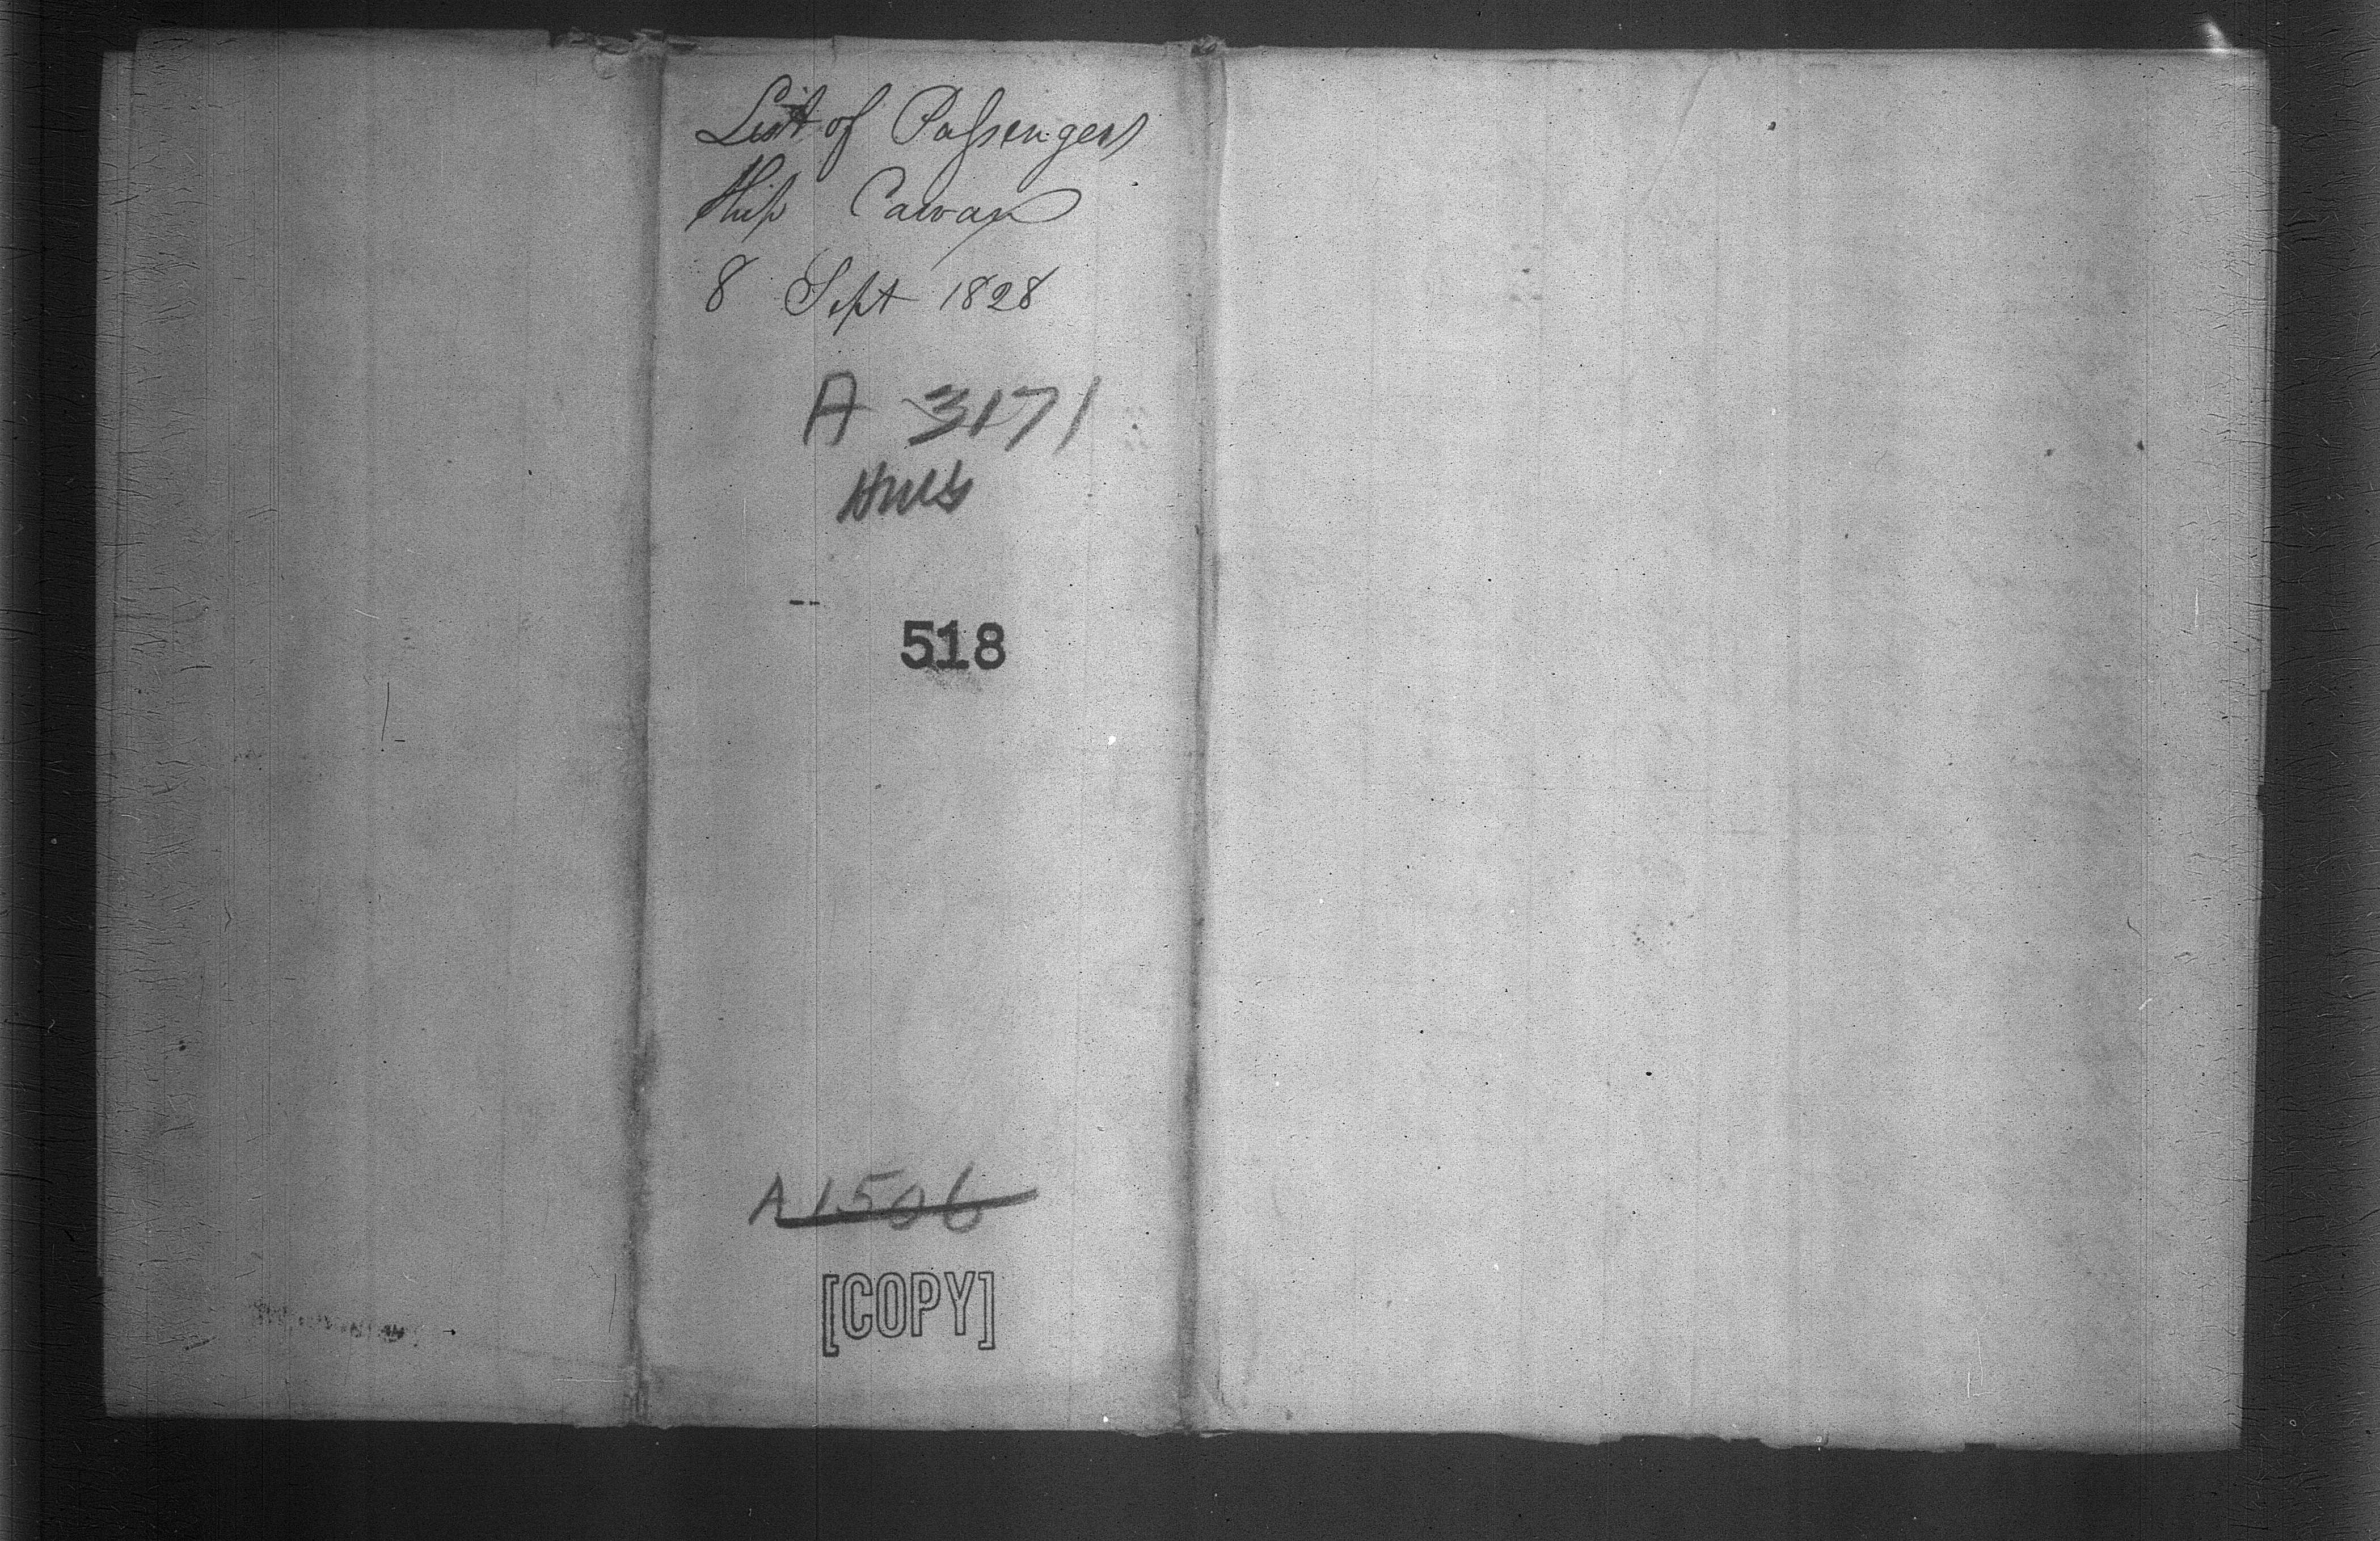 List of Passengers
Ship
8 Sept 1828
A 3171
518
A1506
[COPY]